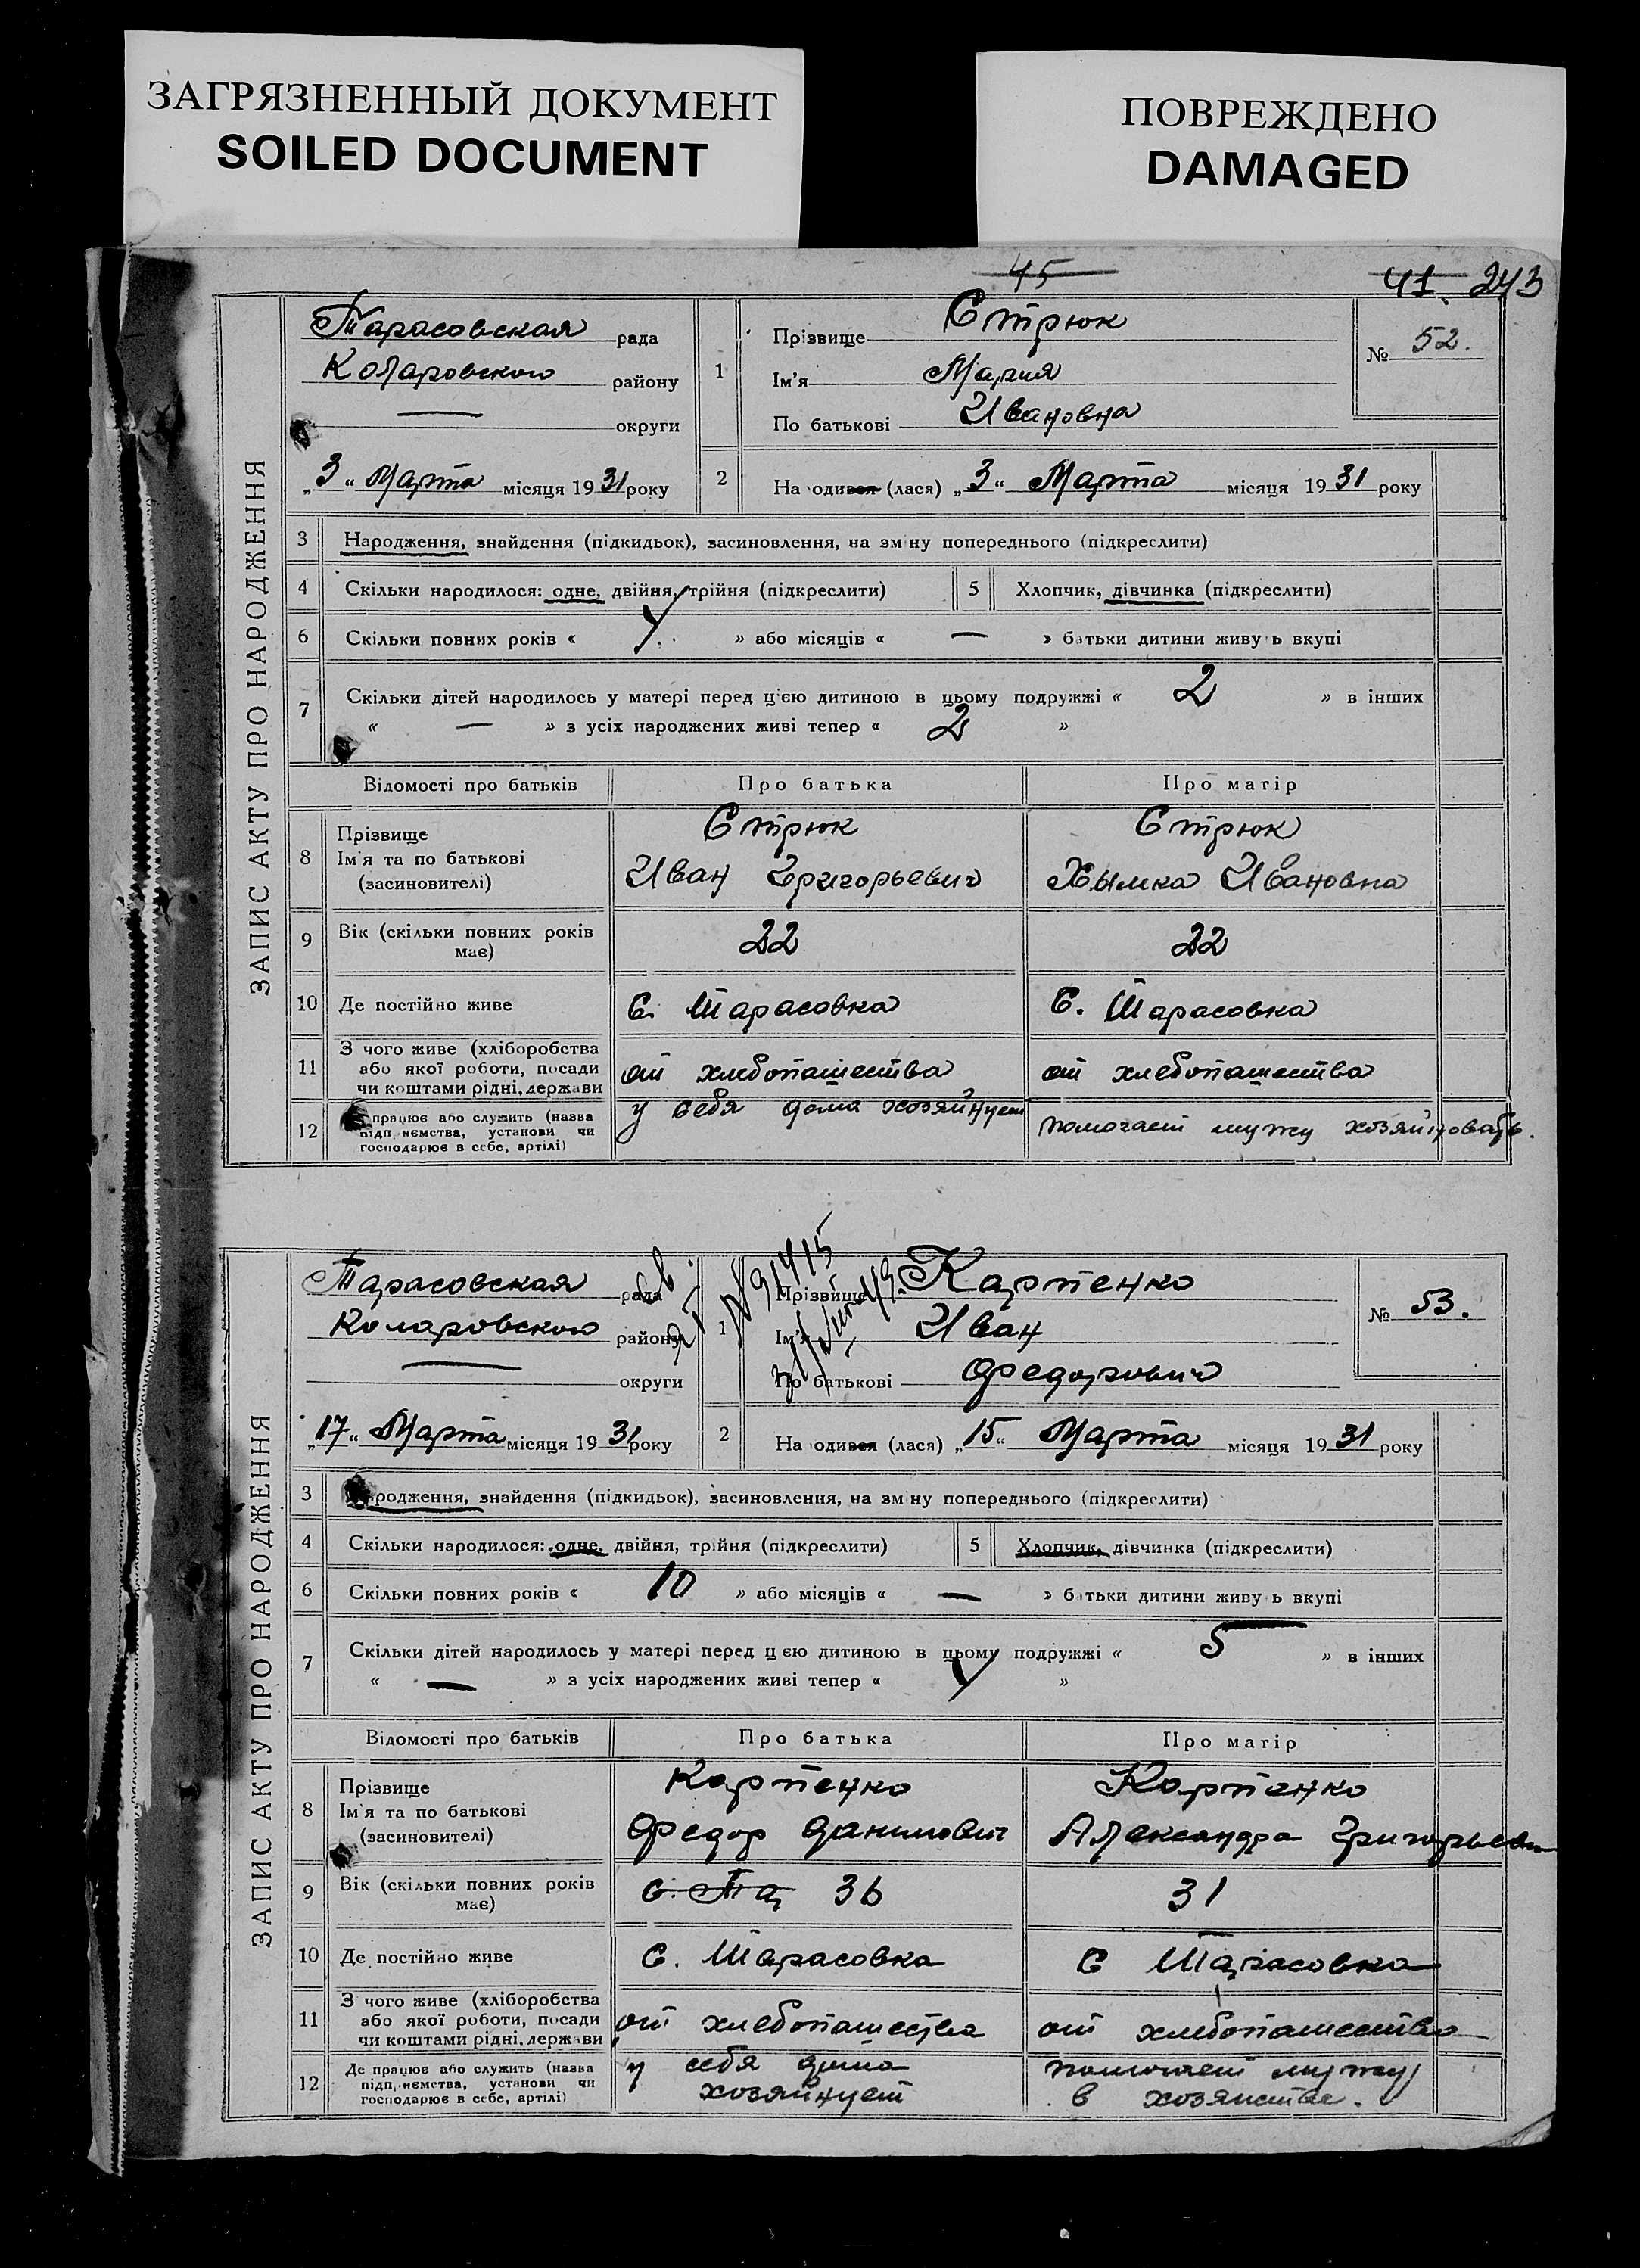 ЗАГРЯЗНЕННЫЙ ДОКУМЕНТ
SOILED DOCUMENT
ПОВРЕЖДЕНО
DAMAGED
45
41. 243
ЗАПИС АКТУ ПРО НАРОДЖЕННЯ
Тарасовская рада
Коларовского району
— округи
„3“ Марта місяця 1931 року
1
Прізвище Стрюк
Ім'я Мария
По батькові Ивановна
№ 52.
2 На одився (лася) „3“ Марта місяця 1931 року
3 Народження, знайдення (підкидьок), засиновлення, на зміну попереднього (підкреслити)
4 Скільки народилося: одне, двійня, трійня (підкреслити) 5 Хлопчик, дівчинка (підкреслити)
6 Скільки повних років « 4 » або місяців « — » батьки дитини живу ь вкупі
7 Скільки дітей народилось у матері перед цією дитиною в цьому подружжі « 2 » в інших
« — » з усіх народжених живі тепер « 2 »
Відомості про батьків Про батька Про матір
8 Прізвище Стрюк Стрюк
Ім'я та по батькові Иван Григорьевич Хымка Ивановна
(засиновителі)
9 Вік (скільки повних років має) 22 22
10 Де постійно живе С. Тарасовка С. Тарасовка
11 З чого живе (хліборобства
або якої роботи, посади
чи коштами рідні, держави от хлебопашества от хлебопашества
12 працює або служить (назва
підп ємства, установи чи
господарює в себе, артілі) у себя дома хозяйнует помогает мужу хозяйновать.
ЗАПИС АКТУ ПРО НАРОДЖЕННЯ
Тарасовская рада
Коларовского району
— округи
„17“ Марта місяця 1931 року
1
Прізвище Карпенко
Ім'я Иван
По батькові Федорович
№ 53.
2 На одився (лася) „15“ Марта місяця 1931 року
3 родження, знайдення (підкидьок), засиновлення, на зміну попереднього (підкреслити)
4 Скільки народилося: одне, двійня, трійня (підкреслити) 5 Хлопчик, дівчинка (підкреслити)
6 Скільки повних років « 10 » або місяців « — » батьки дитини живу ь вкупі
7 Скільки дітей народилось у матері перед ц єю дитиною в цьому подружжі « 5 » в інших
« — » з усіх народжених живі тепер « 4 »
Відомості про батьків Про батька Про матір
8 Прізвище Карпенко Карпенко
Ім'я та по батькові Федор Данилович Александра Григорьевн
(засиновителі)
9 Вік (скільки повних років має) с. Та 36 31
10 Де постійно живе С. Тарасовка С Тарасовка
11 З чого живе (хліборобства
або якої роботи, посади
чи коштами рідні, держави от хлебопашества от хлебопашества
12 Де працює або служить (назва
підп ємства, установи чи
господарює в себе, артілі) у себя дома хозяйнует помогает мужу в хозянстве.